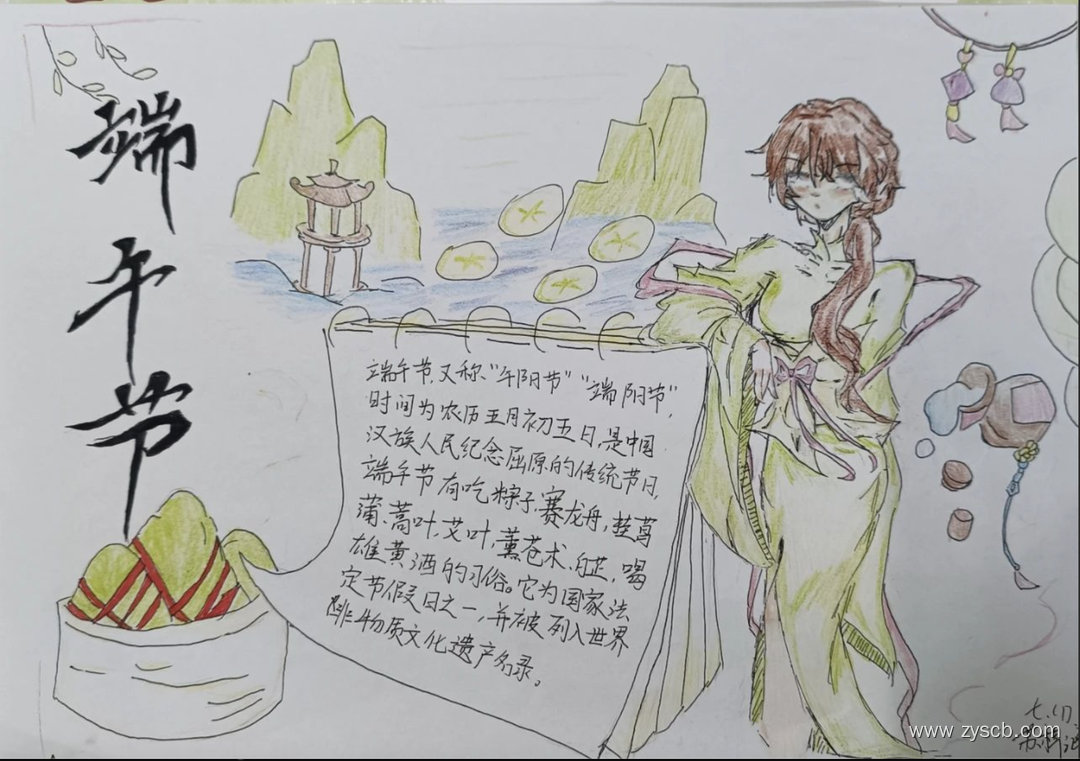 端午节
端午节,又称、“午阳节”“端阳节”,
时间为农历五月初五日,是中国
汉族人民纪念屈原的传统节日,
端午节有吃粽子,赛龙舟,挂菖
蒲、蒿叶,艾叶,薰苍术、白芷,喝
雄黄酒的习俗。它为国家法
定节假日之一,并被列入世界
非物质文化遗产名录。
www.zyscb.com